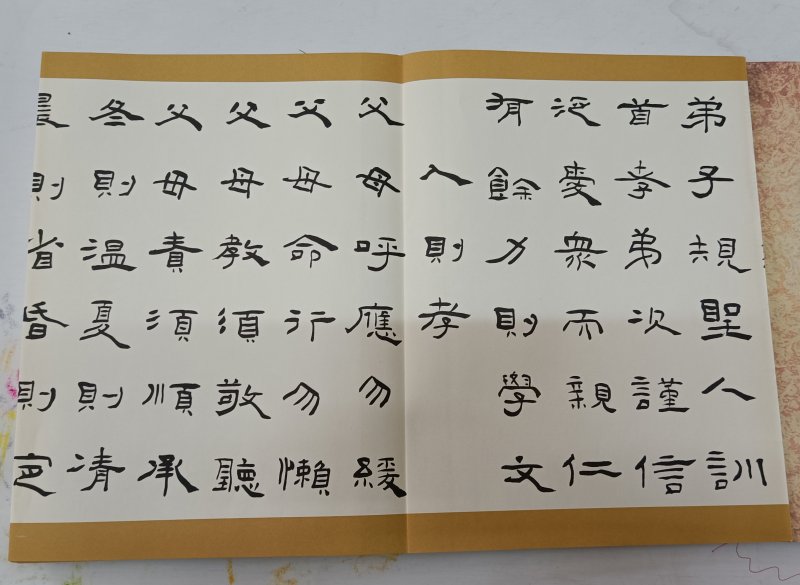 弟子規聖人訓
首孝弟次謹信
泛愛衆而親仁
有餘力則學文
入則孝
父母呼應勿緩
父母命行勿懶
父母教須敬聽
父母責須順承
冬則温夏則凊
晨則省昏則定